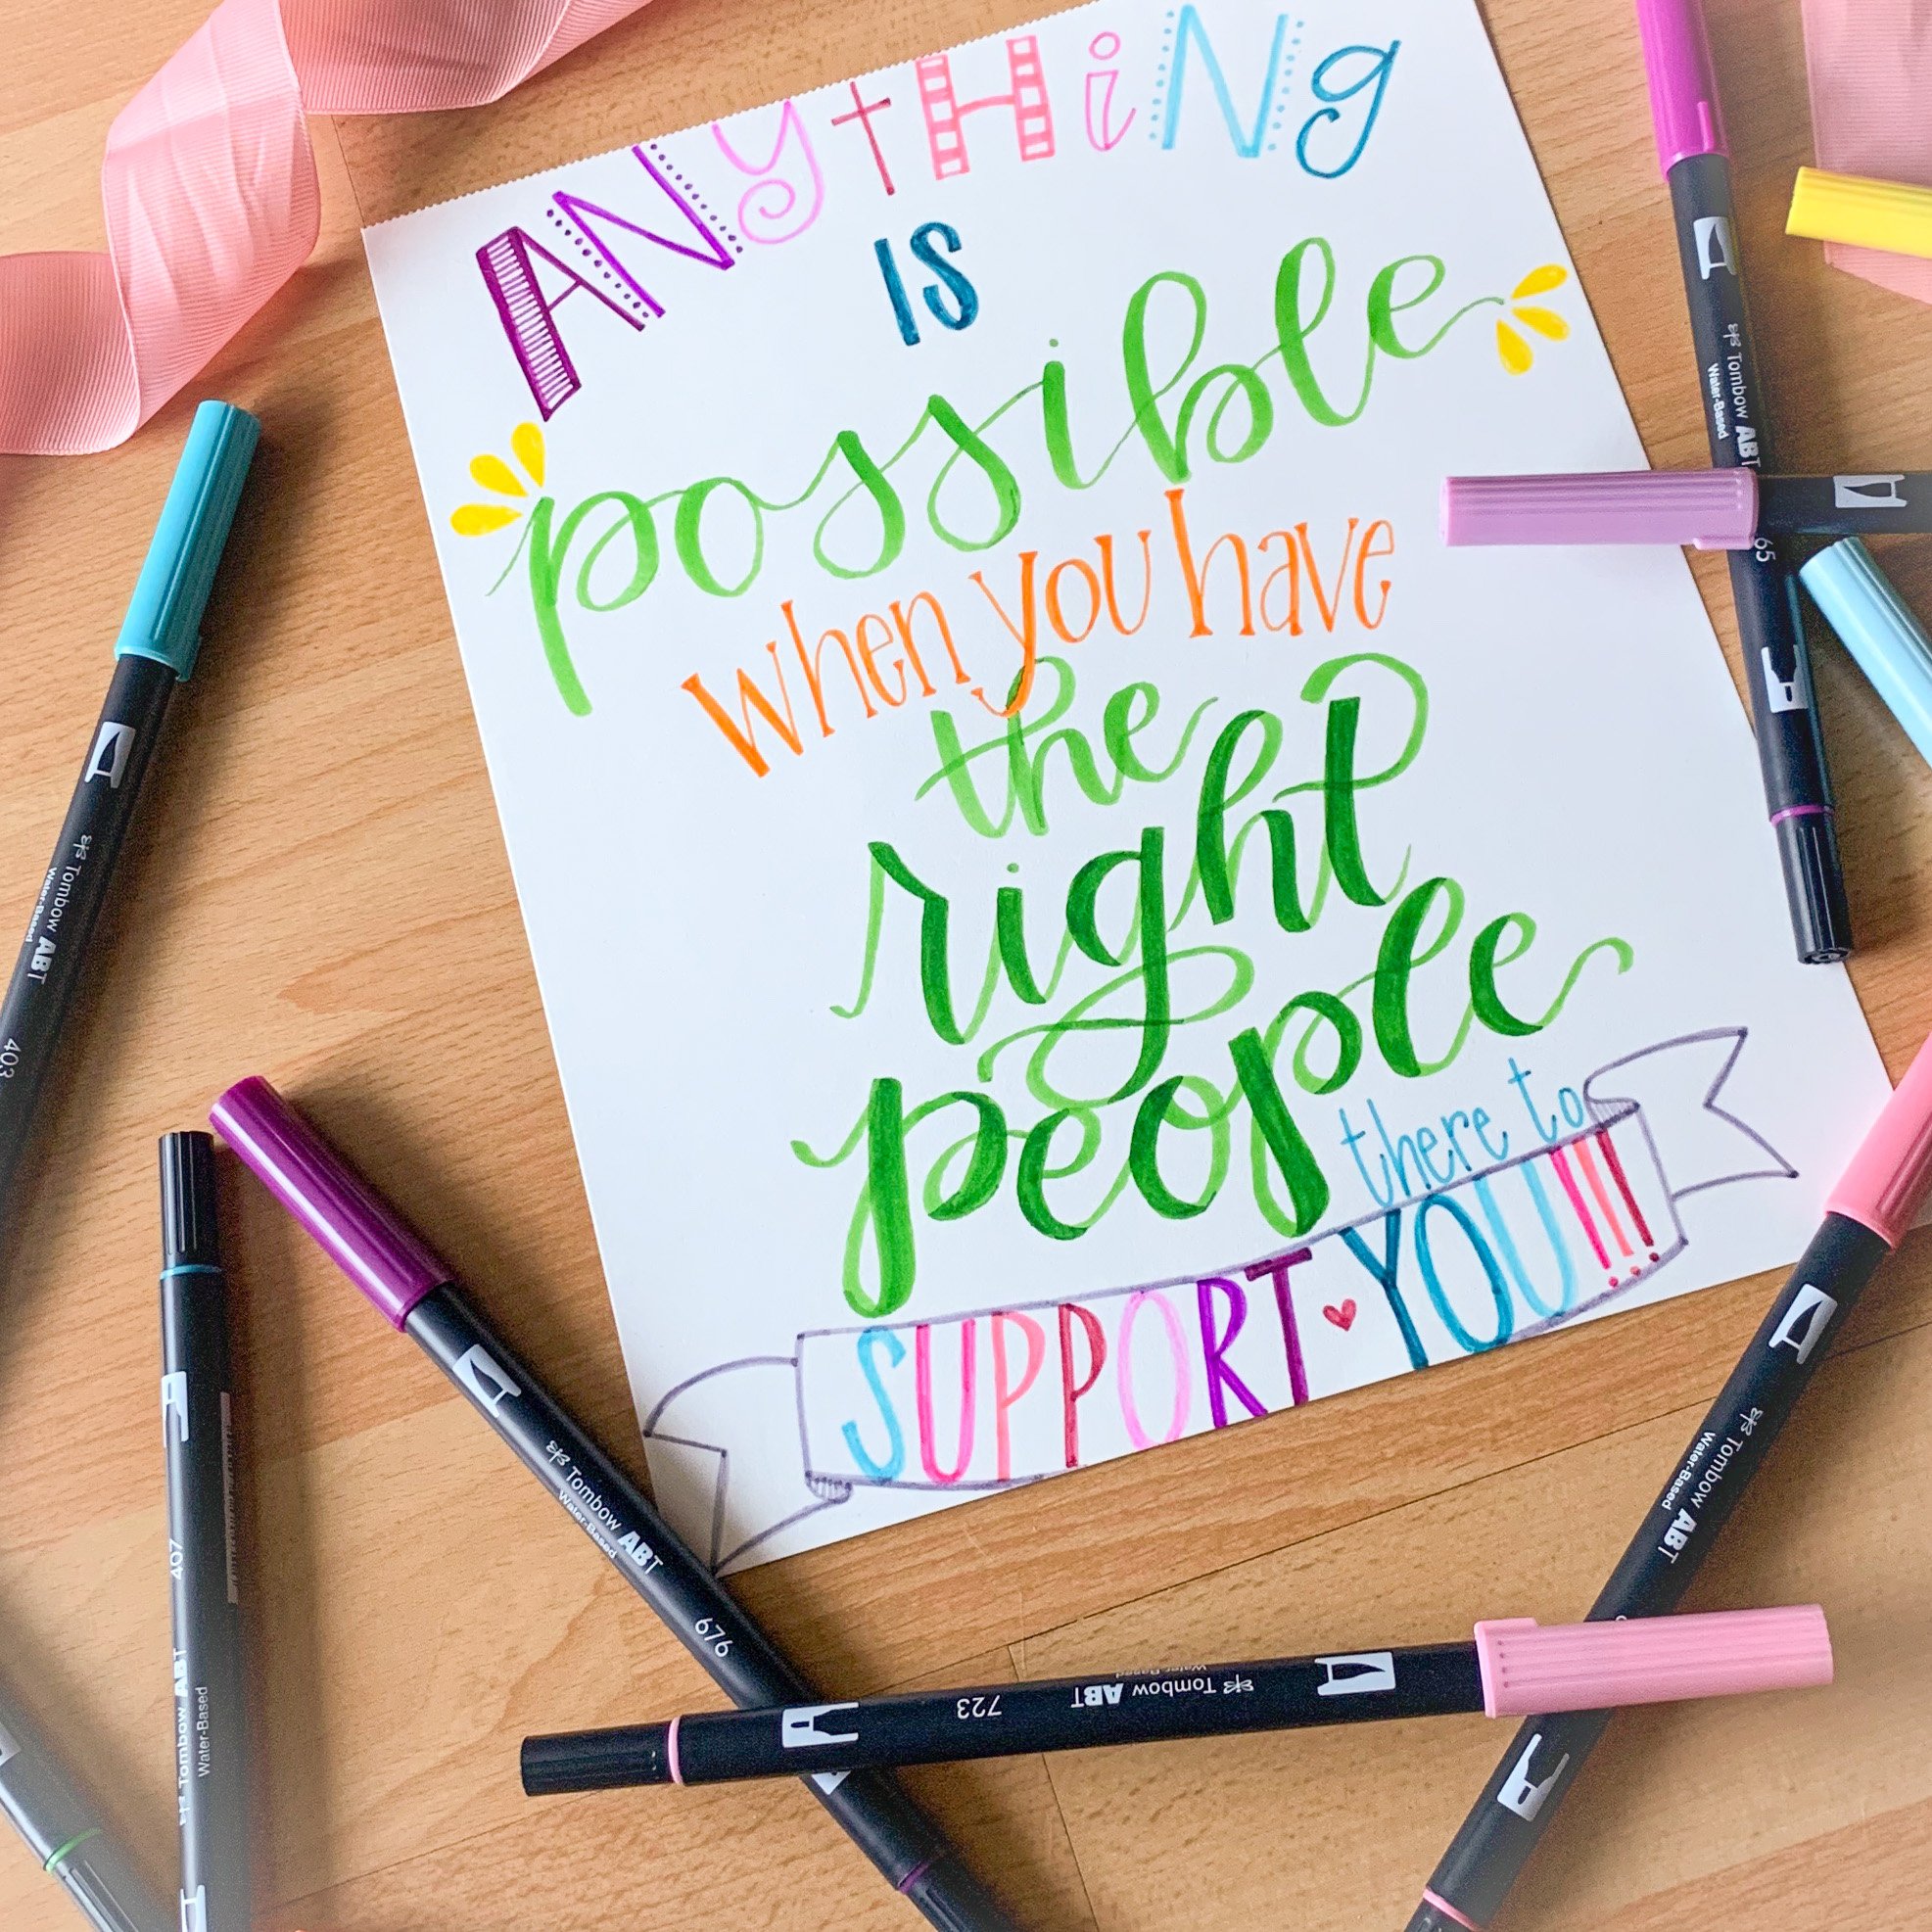 ANyTHiNg
IS
possible
when you have
the
right
people
there to
SUPPORT YOU!!!
Tombow ABT
Water-Based
403
407
Tombow ABT
Water-Based
Tombow ABT
Water-Based
676
723
Tombow ABT
Water-Based
Tombow ABT
Water-Based
Tombow ABT
Water-Based
65